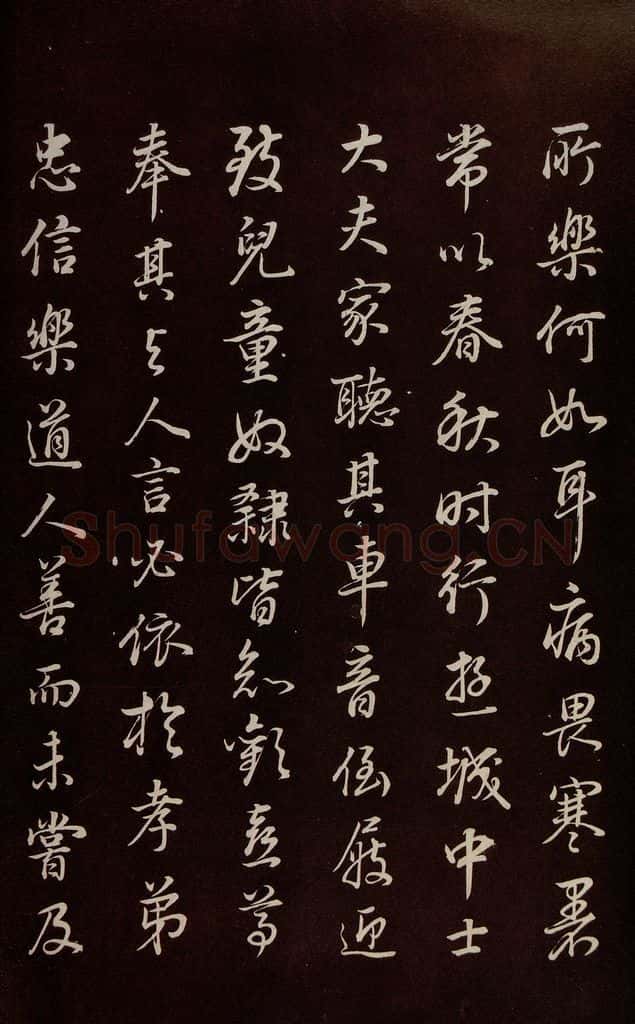 所樂何如耳病畏寒暑
常以春秋时行遊城中士
大夫家聽其車音倒屐迎
致兒童奴隸皆知歡喜尊
奉其与人言必依於孝弟
忠信樂道人善而未嘗及
Shufawang.CN